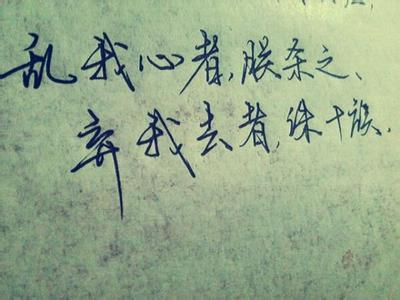 乱我心者,朕杀之、
弃我去者,诛十族.